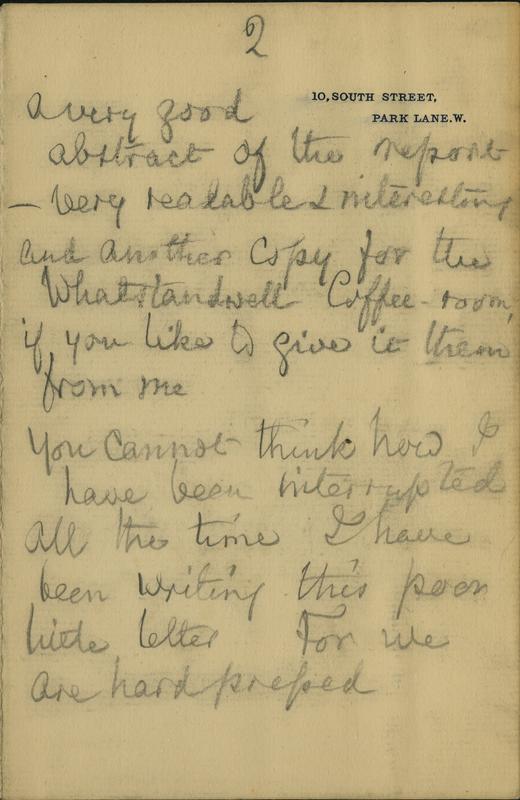 2
10, SOUTH STREET,
PARK LANE. W.
a very good
abstract of the report
- very readable & interesting
and another copy for the
Whatstandwell Coffee-room,
if you like to give it them
from me
You cannot think how I
have been interrupted
all the time I have
been writing this poor
little letter For we
are hard pressed